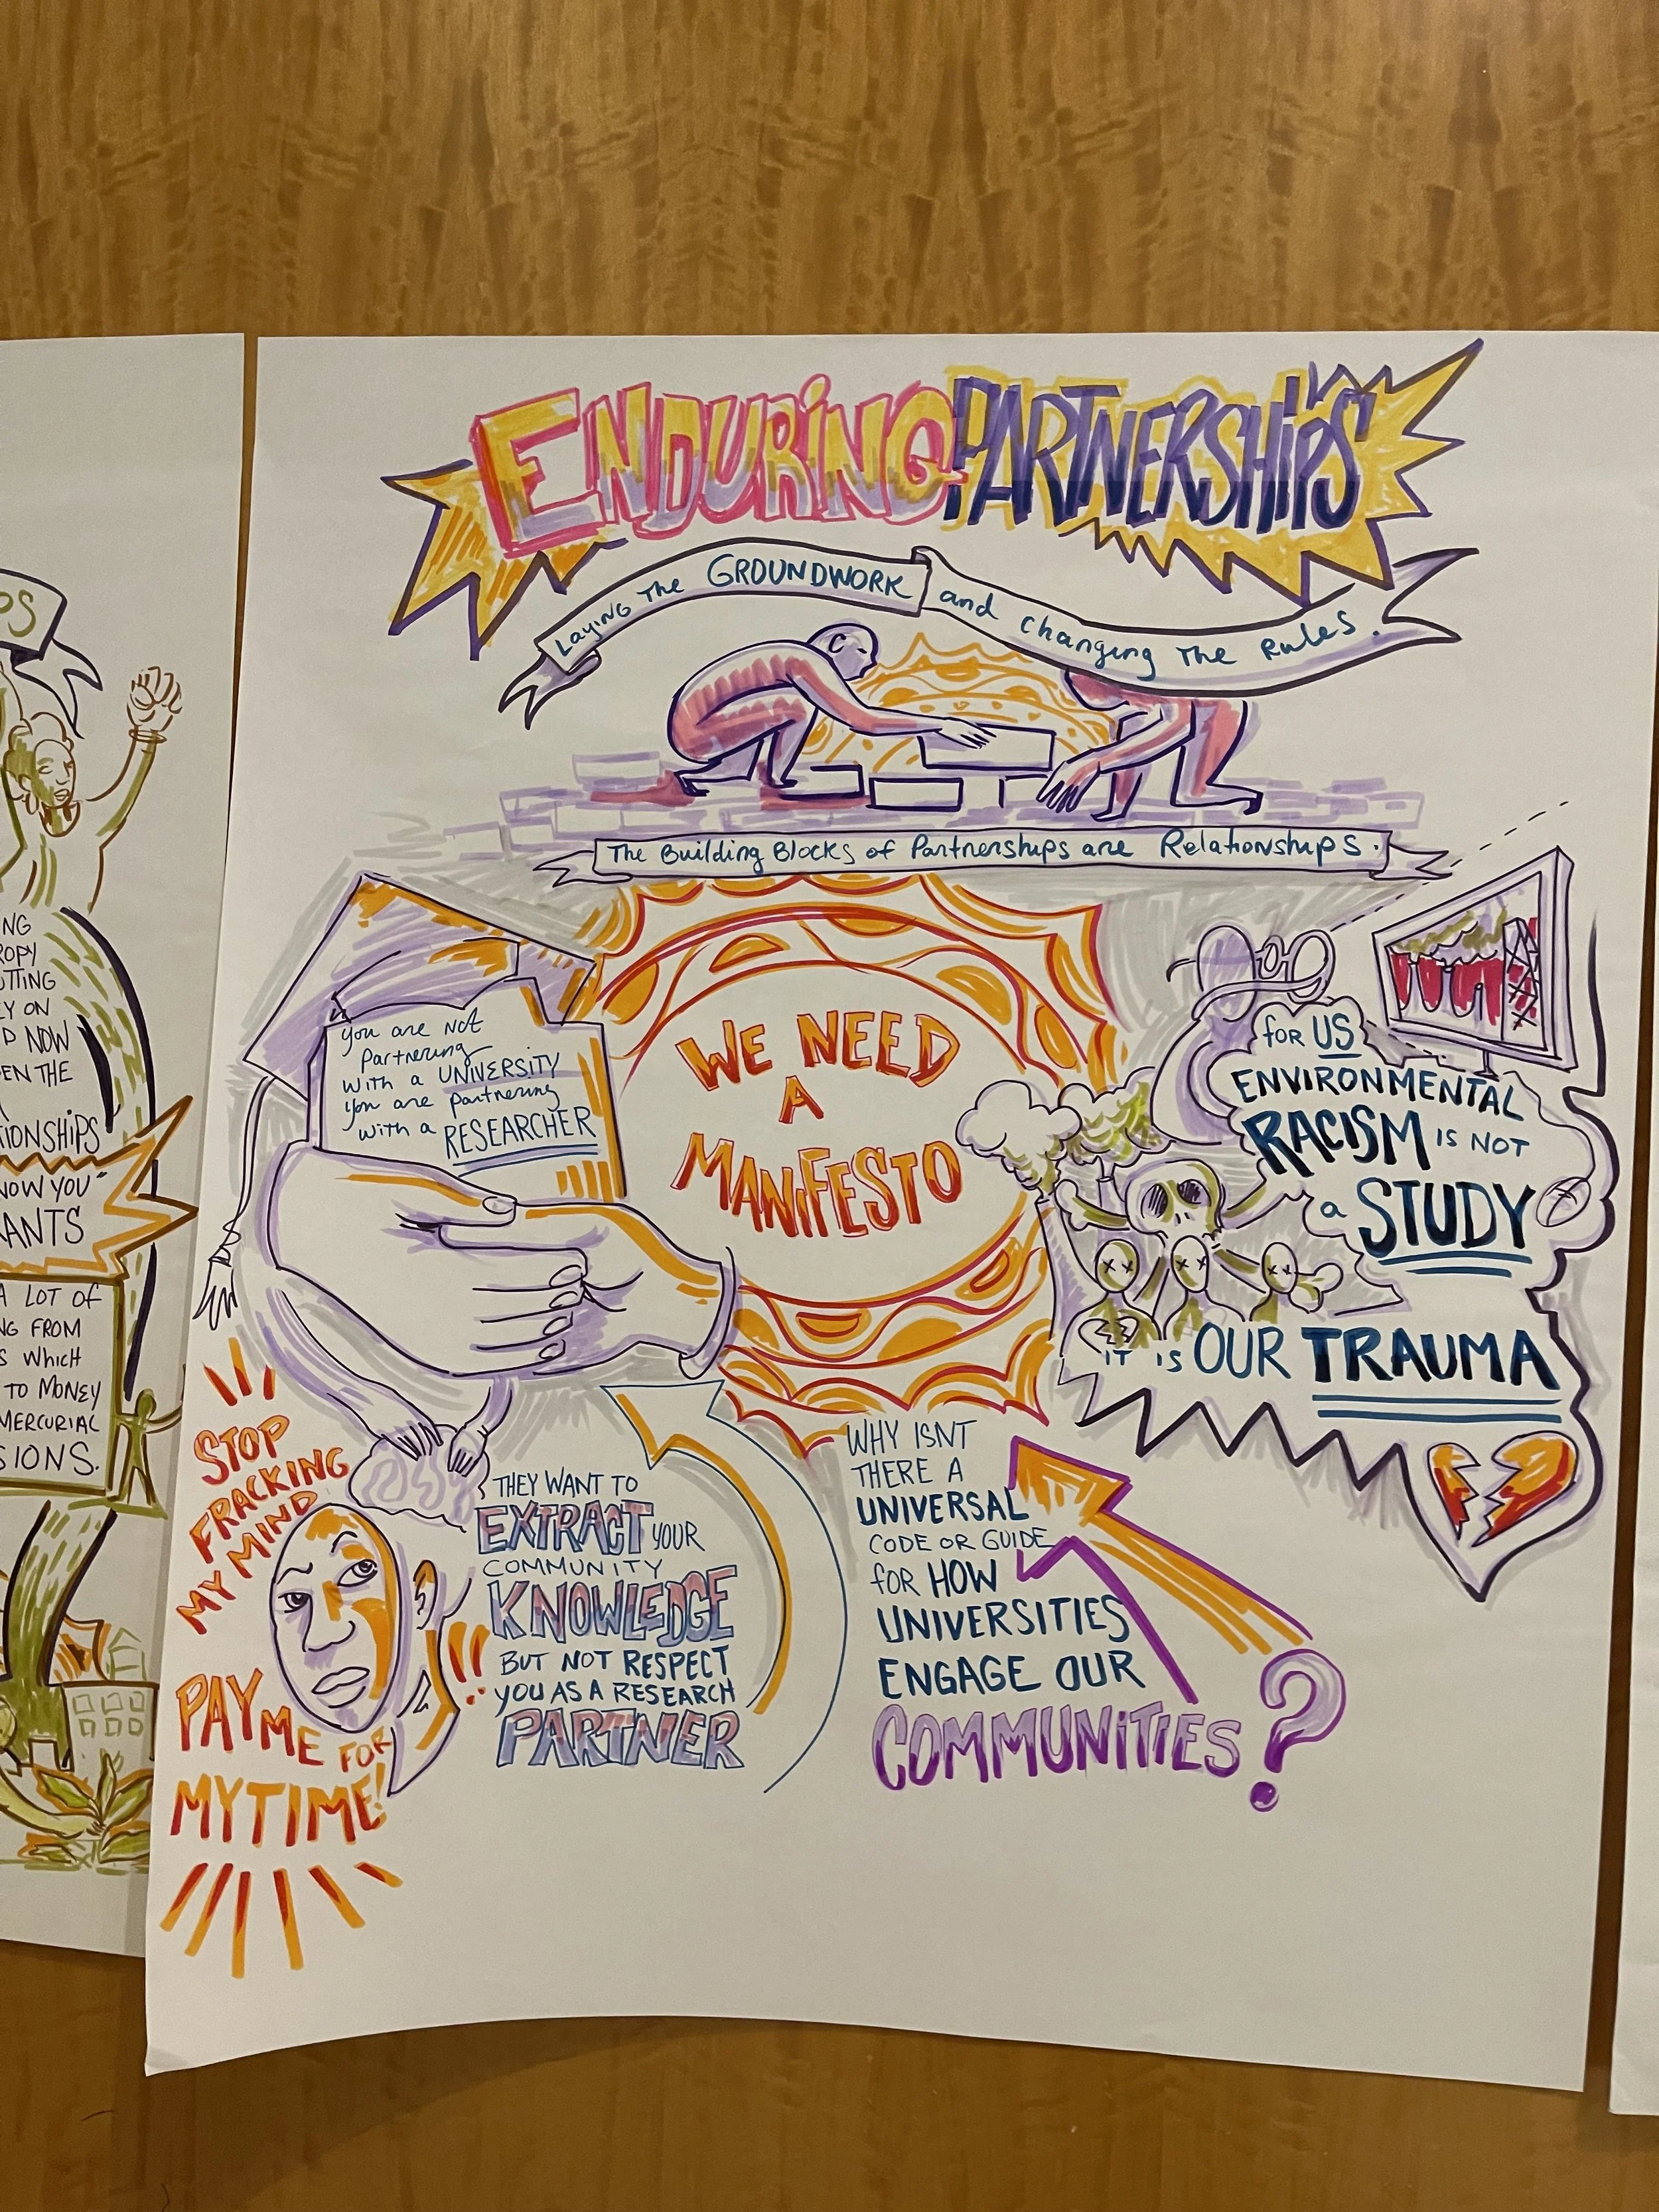 ENDURING PARTNERSHIPS
Laying The GROUNDWORK and changing The Rules.
The Building Blocks of Partnerships are Relationships.
you are not
partnering
with a UNIVERSITY
you are partnering
with a RESEARCHER
WE NEED
A
MANIFESTO
for US
ENVIRONMENTAL
RACISM IS NOT
a STUDY
IT IS OUR TRAUMA
STOP
FRACKING
MY MIND
PAY ME FOR
MY TIME!
!!
THEY WANT TO
EXTRACT YOUR
COMMUNITY
KNOWLEDGE
BUT NOT RESPECT
YOU AS A RESEARCH
PARTNER
WHY ISNT
THERE A
UNIVERSAL
CODE OR GUIDE
for HOW
UNIVERSITIES
ENGAGE OUR
COMMUNITIES?
PS
NG
ROPY
UTTING
EY ON
D NOW
EN THE
TIONSHIPS
NOW YOU"
ANTS
A LOT OF
NG FROM
S WHICH
TO MONEY
MERCURIAL
SIONS.